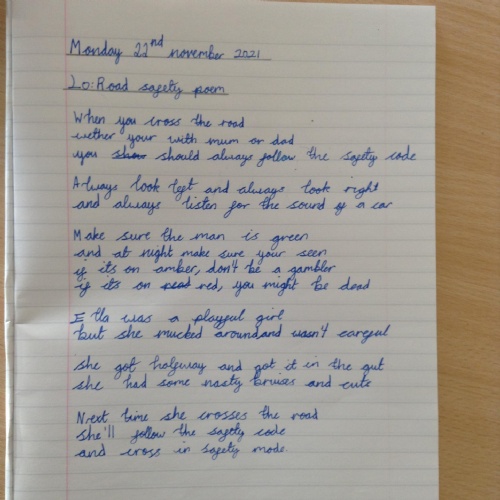 Monday 22nd november 2021
Lo: Road safety poem
When you cross the road
wether your with mum or dad
you should always follow the safety code
Always look left and always look right
and always listen for the sound of a car
Make sure the man is green
and at night make sure your seen
if its on amber, don't be a gambler
if its on red, you might be dead
Etla was a playful girl
but she mucked around,and wasn't careful
She got halfway and got it in the gut
she had some nasty bruses and cuts
Next time she crosses the road
she'll follow the safety code
and cross in safety mode.